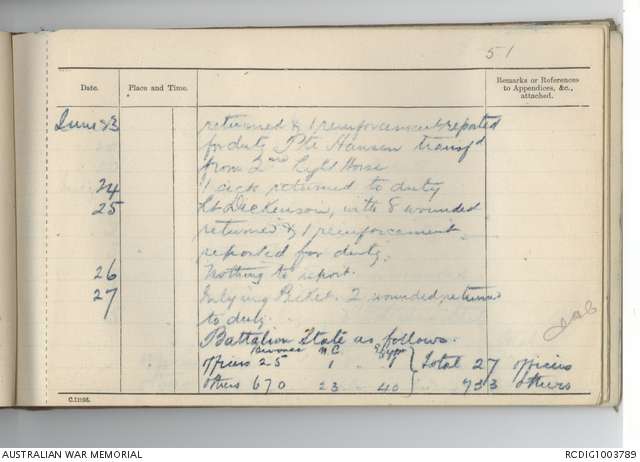 51
Date. Place and Time. Remarks or References to Appendices, &c., attached.
June 23 returned & 1 reinforcement reported
for duty Pte Hansen transfd
from 2nd Light Horse
24 1 sick returned to duty
25 Lt Dickenson, with 8 wounded
returned & 1 reinforcement
reported for duty.
26 Nothing to report.
27 Inlying Picket. 2 wounded returned
to duty.
Battalion State as follows.
M.C. Egypt
Officers 25 1 1 Total 27 officers
Others 670 23 40 733 others
C.1198.
AUSTRALIAN WAR MEMORIAL RCDIG1003789